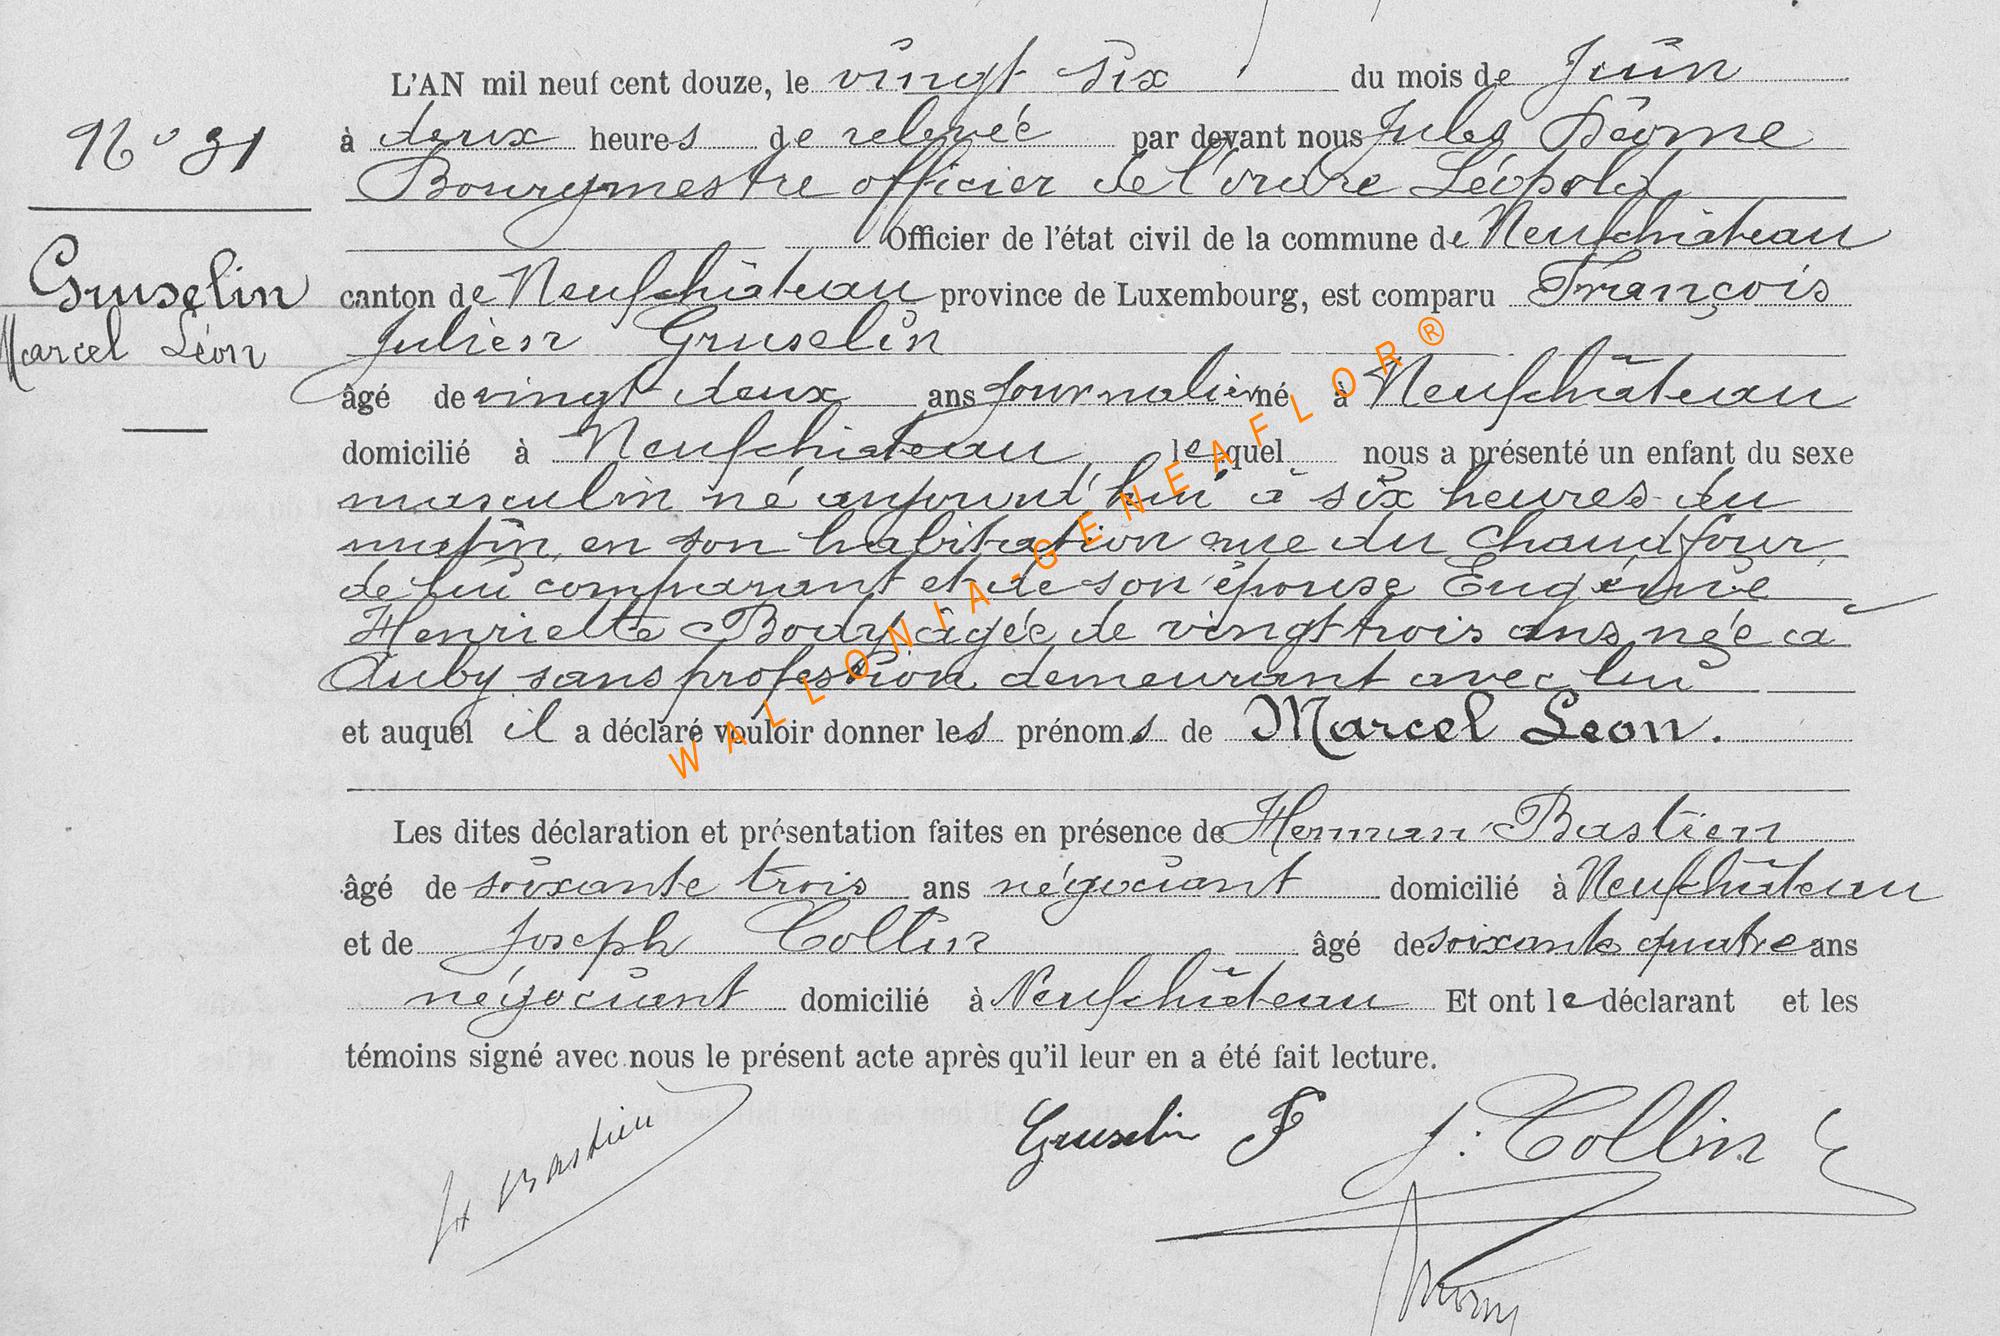 L'AN mil neuf cent douze, le vingt six du mois de Juin
à deux heures de relevée par devant nous Jules
N° 31
Bourgmestre officier de l'ordre Léopold
Officier de l'état civil de la commune de Neufchâteau
Gruselin
canton de Neufchâteau province de Luxembourg, est comparu François
Marcel Léon
Julien Gruselin
âgé de vingt deux ans journalier né à Neufchâteau
domicilié à Neufchâteau lequel nous a présenté un enfant du sexe
masculin né aujourd'hui à six heures du
matin, en son habitation rue du Chaudfour
de lui comparant et de son épouse Eugénie
Henriette Body âgée de vingt trois ans, née à
Auby sans profession demeurant avec lui
et auquel il a déclaré vouloir donner les prénoms de Marcel Leon.
Les dites déclaration et présentation faites en présence de Herman Bastien
âgé de soixante trois ans négociant domicilié à Neufchâteau
et de Joseph Collin âgé de soixante quatre ans
négociant domicilié à Neufchâteau Et ont le déclarant et les
témoins signé avec nous le présent acte après qu'il leur en a été fait lecture.
Bastien
Gruselin F
J. Collin
WALLONIA-GENEAFLOR®